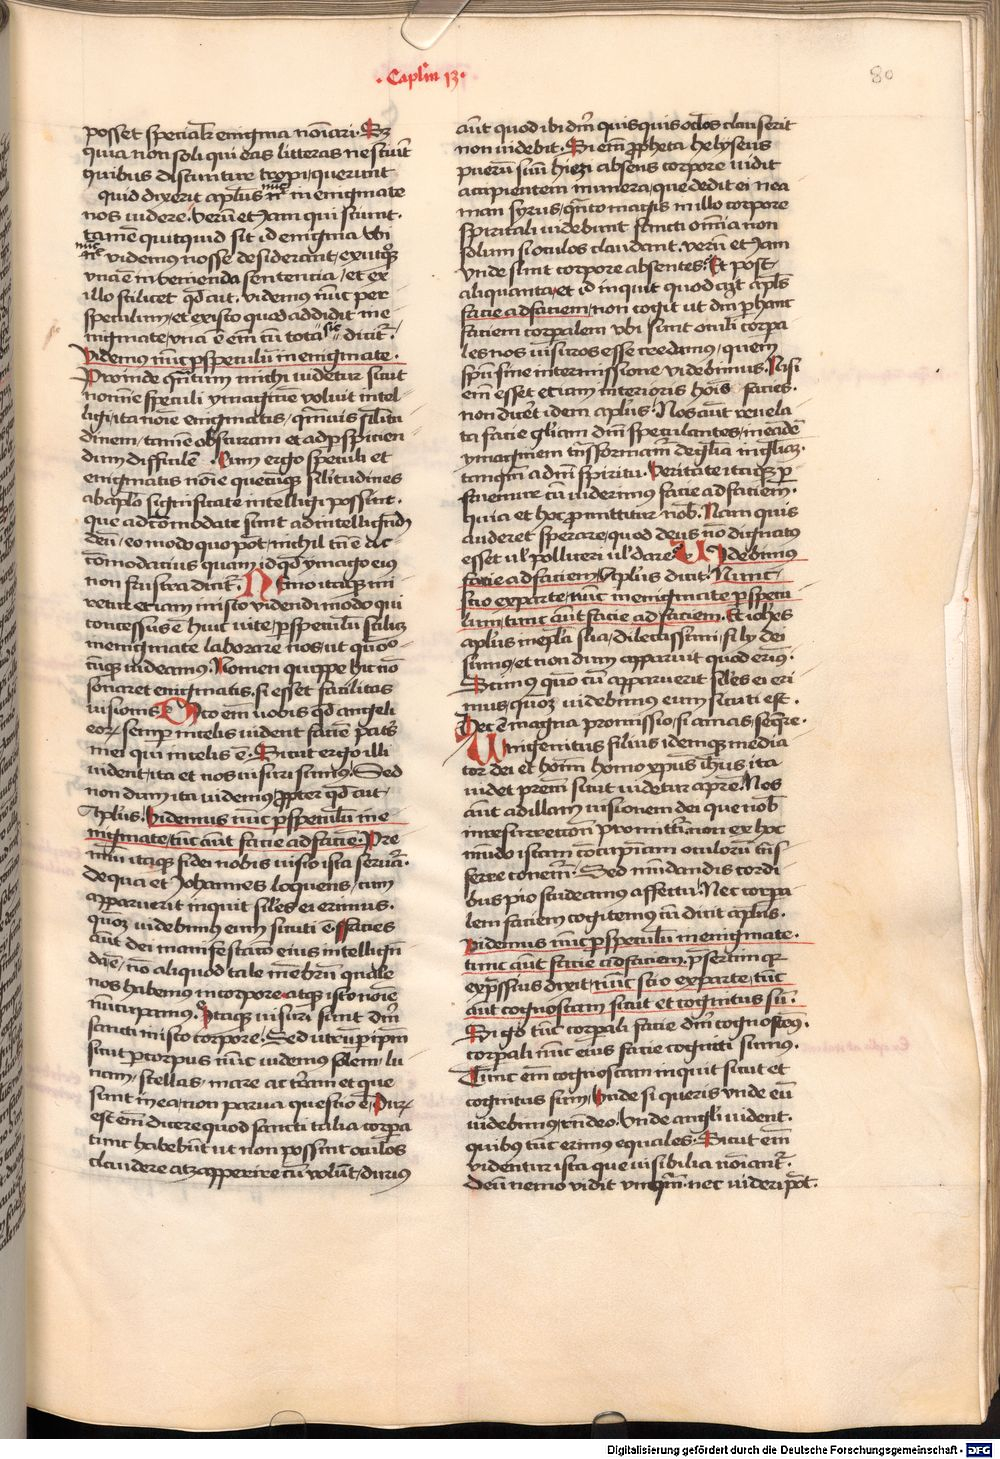 · Caplm 13 ·
80
posset specialr enigma noiari. Sz
quia non soli qui eas litteras nesciut
quibus discuntur tropi, querunt
quid dixerit aplus nuc in enigmate
nos videre. verum etiam qui sciunt.
tame quitquid sit id enigma vbi
nuc videmus nosse desiderant, ex utrisq
vna e invenienda sentencia, et ex
illo scilicet qd ait. videmus nuc per
speculum, et ex isto quod addidit in e
nigmate, vna e em cu tota sic dicitr,
Videmus nuc p speculu in enigmate.
Proinde qntum michi videtur sicut
nomine speculi ymagine voluit intel
ligi, ita noie enigmatis, qmuis silitu
dinem, tamen obscuram et ad pspicien
dum difficile. Cum ergo speculi et
enigmatis noie quecuq silitudines
ab aplo significate intelligi possint.
que accomodate sunt ad intelligendu
deu, eo modo quo pot, nichil tn e ac
comodacius quam id qd ymago eius
non frustra dicitr. Nemo itaq mi
retur etiam in isto videndi modo qui
concessus e huic vite, p speculu scilicz
in enigmate laborare nos, ut quoo
cuq videamus. Nomen quippe hic no
sonaret enigmatis, si esset facilitas
visionis. Dico em vobis qd angeli
eor semp in celis vident facie patris
mei qui in celis e. Sicut ergo illi
vident, ita et nos visuri sumus. Sed
non dum ita videmus, propter qd ait
Aplus. Videmus nuc p speculu in e
nigmate, tuc aut facie ad facie. Pre
miu itaq fidei nobis visio ista servatr.
de qua et Johannes loquens, cum
apparuerit inquit siles ei erimus.
quoz videbimus eum sicuti e. Facies
aut dei manifestatio eius intelligen
da e, no aliquod tale mebru quale
nos habemus in corpore atq isto noie
nucupamus. Itaq visuri sunt dm
sancti in isto corpore. Sed utru p ipm
sicut p corpus nuc videmus solem, lu
nam, stellas, mare ac terram et que
sunt in ea, non parva questio e. Dur
est em dicere quod sancti talia corpa
tunc habebut ut non possint oculos
claudere atq apperire cu volunt, durius
aut quod ibi dm quisquis oclos clauserit
non videbit. Si em propheta helyseus
pueru suu hiezi absens corpore vidit
accipientem munera, que dedit ei nea
man syrus, qnto magis in illo corpore
spiritali videbunt sancti omia non
solum si oculos claudant. verum etiam
vnde sunt corpore absentes. Et post
aliquanta, et id inquit quod ait apls
facie ad faciem, non cogit ut dm p hanc
faciem corpalem vbi sunt oculi corpa
les nos visuros esse credamus, quem
spu sine intermissione videbimus. Nisi
em esset etiam interioris hois facies.
non diceret idem aplus. Nos aut revela
ta facie gliam dm speculantes, in eade
ymaginem transformamr de glia in gliam.
tanqm a dmi spiritu. Veritate itaq p
fruemur cu viderimus facie ad faciem.
Quia et hoc promittitur nob. Nam quis
auderet sperare, quod deus no dignatus
esset vl polliceri vl dare. Videbimus
facie ad faciem, Aplus dicit. Nunc
scio ex parte, nuc in enigmate p specu
lum, tunc aut facie ad faciem. Et iohes
aplus in epla sua, dilectissimi, filij dei
sumus, et non dum apparuit quod erimus.
Scimus quo cu apparuerit siles ei eri
mus, quoz videbimus eum sicuti est.
Hec e magna promissio, si amas, sequere.
Unigenitus filius idemq media
tor dei et hoim homo xpus ihus ita
videt prem sicut videtur a pre. Nos
aut ad illam visionem dei que nob
in resurrectioe promittitr, non ex hoc
mudo istam concupiam oculoru tris
ferre conem. Sed mundandis cordi
bus pio studeamus affectu. Nec corpa
lem faciem cogitemus cu dicit aplus.
Videmus nuc p speculu in enigmate.
tunc aut facie ad faciem, psertim qr
expssius dixit, nuc scio ex parte, tuc
aut cognoscam sicut et cognitus su.
Si go tuc corpali facie dm cognoscem.
corpali nunc eius facie cogniti sumus.
Tunc em cognoscam inquit sicut et
cognitus sum. Unde si queris vnde eu
videbimus, rndeo. Vnde angli vident.
quibus tuc erimus equales. Sicut em
videntur ista que visibilia noiantr.
deu nemo vidit vnqm nec videri pot.
Digitalisierung gefördert durch die Deutsche Forschungsgemeinschaft - DFG